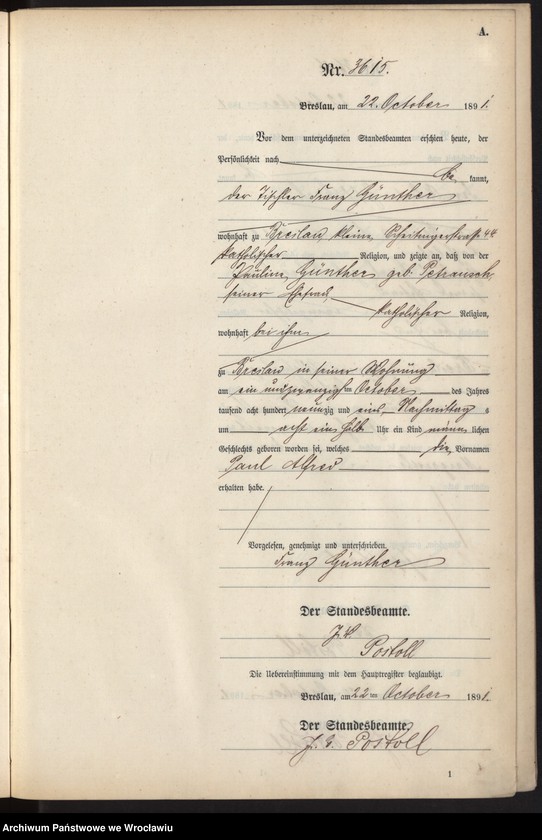 A.
Nr. 3615.
Breslau, am 22. October 1891.
Vor dem unterzeichneten Standesbeamten erschien heute, der
Persönlichkeit nach
be kannt,
der Tischler Franz Günther
wohnhaft zu Breslau kleine Scheitnigerstraße 44
katholischer Religion, und zeigte an, daß von der
Pauline Günther geb. Petrausch,
seiner Ehefrau
katholischer Religion,
wohnhaft bei ihm
zu Breslau in seiner Wohnung
am ein und zwanzigsten October des Jahres
tausend acht hundert neunzig und eins Nachmittag s
um acht ein halb Uhr ein Kind männlichen
Geschlechts geboren worden sei, welches die Vornamen
Paul Alfred
erhalten habe.
Vorgelesen, genehmigt und unterschrieben.
Franz Günther
Der Standesbeamte.
Postoll
Die Uebereinstimmung mit dem Hauptregister beglaubigt.
Breslau, am 22ten October 1891.
Der Standesbeamte.
J. V. Postoll
1
Archiwum Państwowe we Wrocławiu